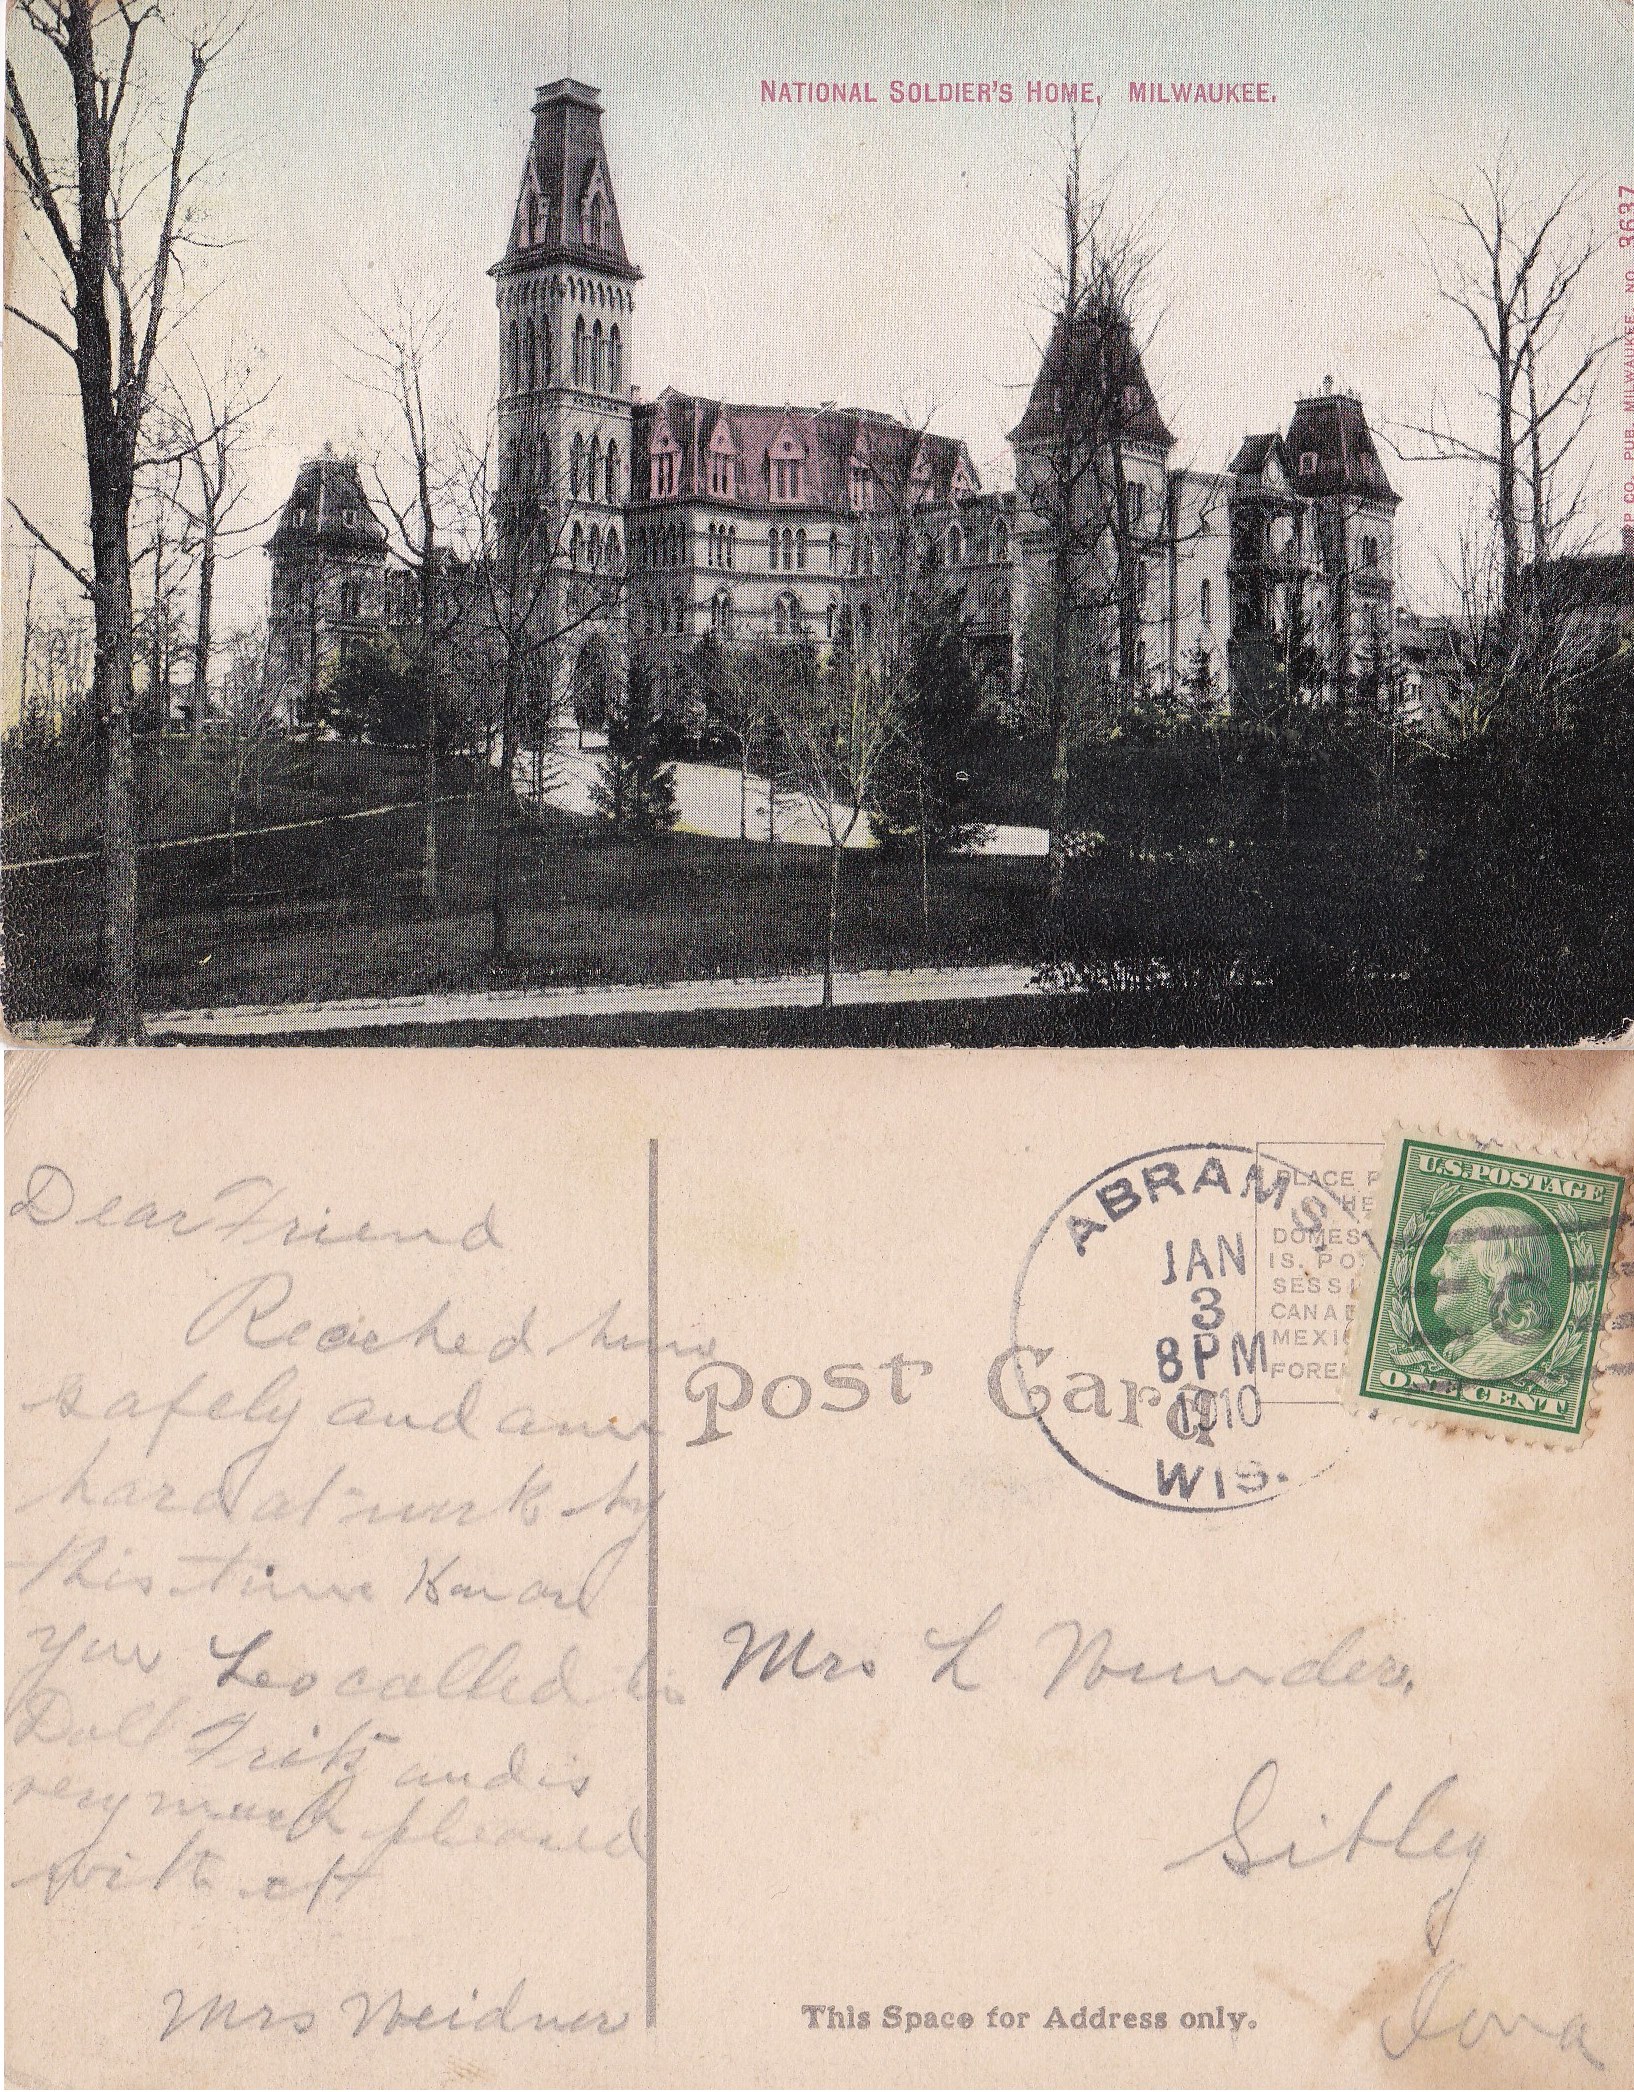 NATIONAL SOLDIER'S HOME, MILWAUKEE.
CO. PUB. MILWAUKEE. NO. 3637
Dear Friend
Reached home
safely and am
hard at work by
this time
you Leo called his
Doll Fritz and is
very much pleased
with it
Mrs Weidner
Post Card
ABRAMS,
JAN
3
8PM
1910
WIS.
PLACE
HE
DOMES
IS. PO
SESSI
CANA
MEXI
FORE
U.S. POSTAGE
ONE CENT
Mrs L Wunder.
Sibley
Iowa
This Space for Address only.